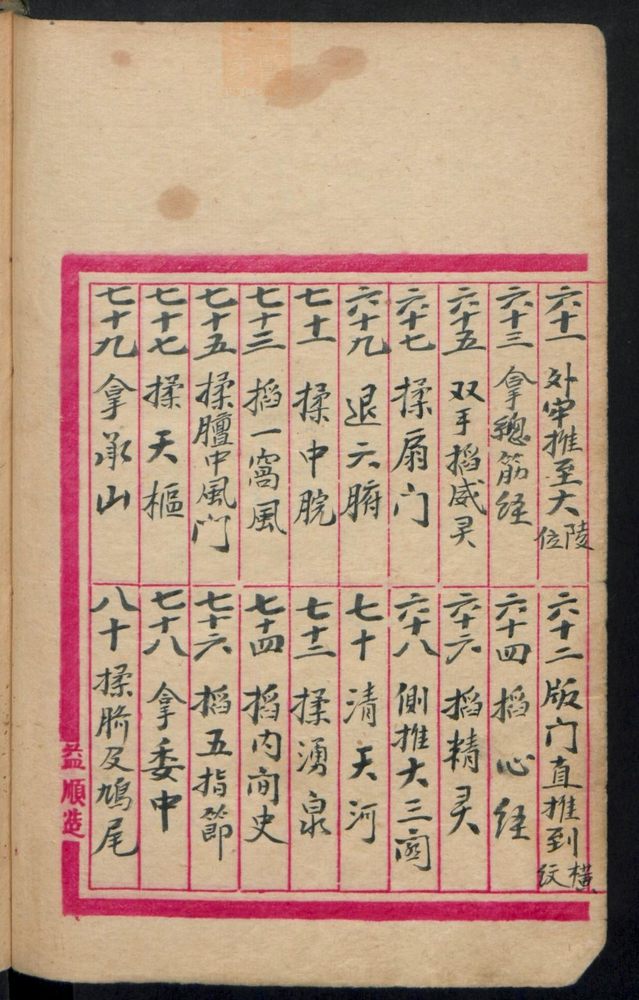 六十一 外牢推至大陵位
六十二 版门直推到横纹
六十三 拿總筋经
六十四 搯心经
六十五 双手搯威灵
六十六 搯精灵
六十七 揉扇门
六十八 側推大三関
六十九 退六腑
七十 清天河
七十一 揉中脘
七十二 揉湧泉
七十三 搯一窩風
七十四 搯内间史
七十五 揉膻中風门
七十六 搯五指節
七十七 揉天樞
七十八 拿委中
七十九 拿承山
八十 揉臍及鳩尾
益順造